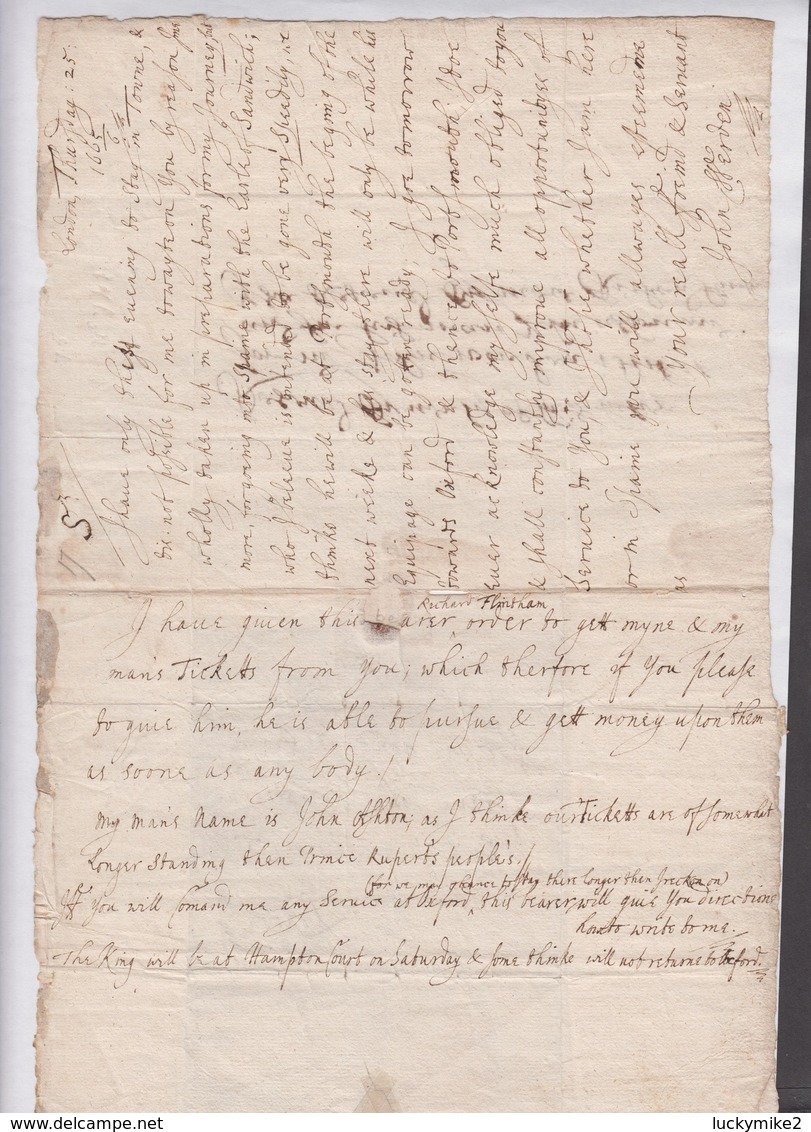 London, Thursday: 25:
1665/6
Sr
I have only this evening to Stay in Towne, &
tis not possible for me to wayte on You by reason I me
wholly taken up in preparations for my Journey, &
more, for going into Spaine with the Earle of Sandwich;
who I beleeue is intended to be gone very Speedily, we
thinke he will be at Portsmouth the begining of the
next weeke & his stay there will only be while his
Equipage can be gotten ready; I goe tomorrow
towards Oxford & thence to Portsmouth; I doe
euer acknowledge my selfe much obliged to you
& shall constantly improue all opportunityes of
Seruice to You, & whether I am here
or in Spaine you will allwayes esteeme me
as Your reall freind & Seruant
John Werden
I haue given this bearer Richard Flintham order to gett myne & my
man's Ticketts from You; which therfore if You please
to giue him, he is able to pursue & gett money upon them
as soone as any body./
My man's Name is John Ashton; as I thinke our Ticketts are of somewhat
Longer Standing then Prince Ruperts people's./
(for we may chance to stay there longer then I reckon on)
If You will Comand me any Seruice at Oxford, this bearer will giue You directions
how to write to me./
The King will be at Hampton Court on Saturday & some thinke will not returne to Oxford./
luckymike2